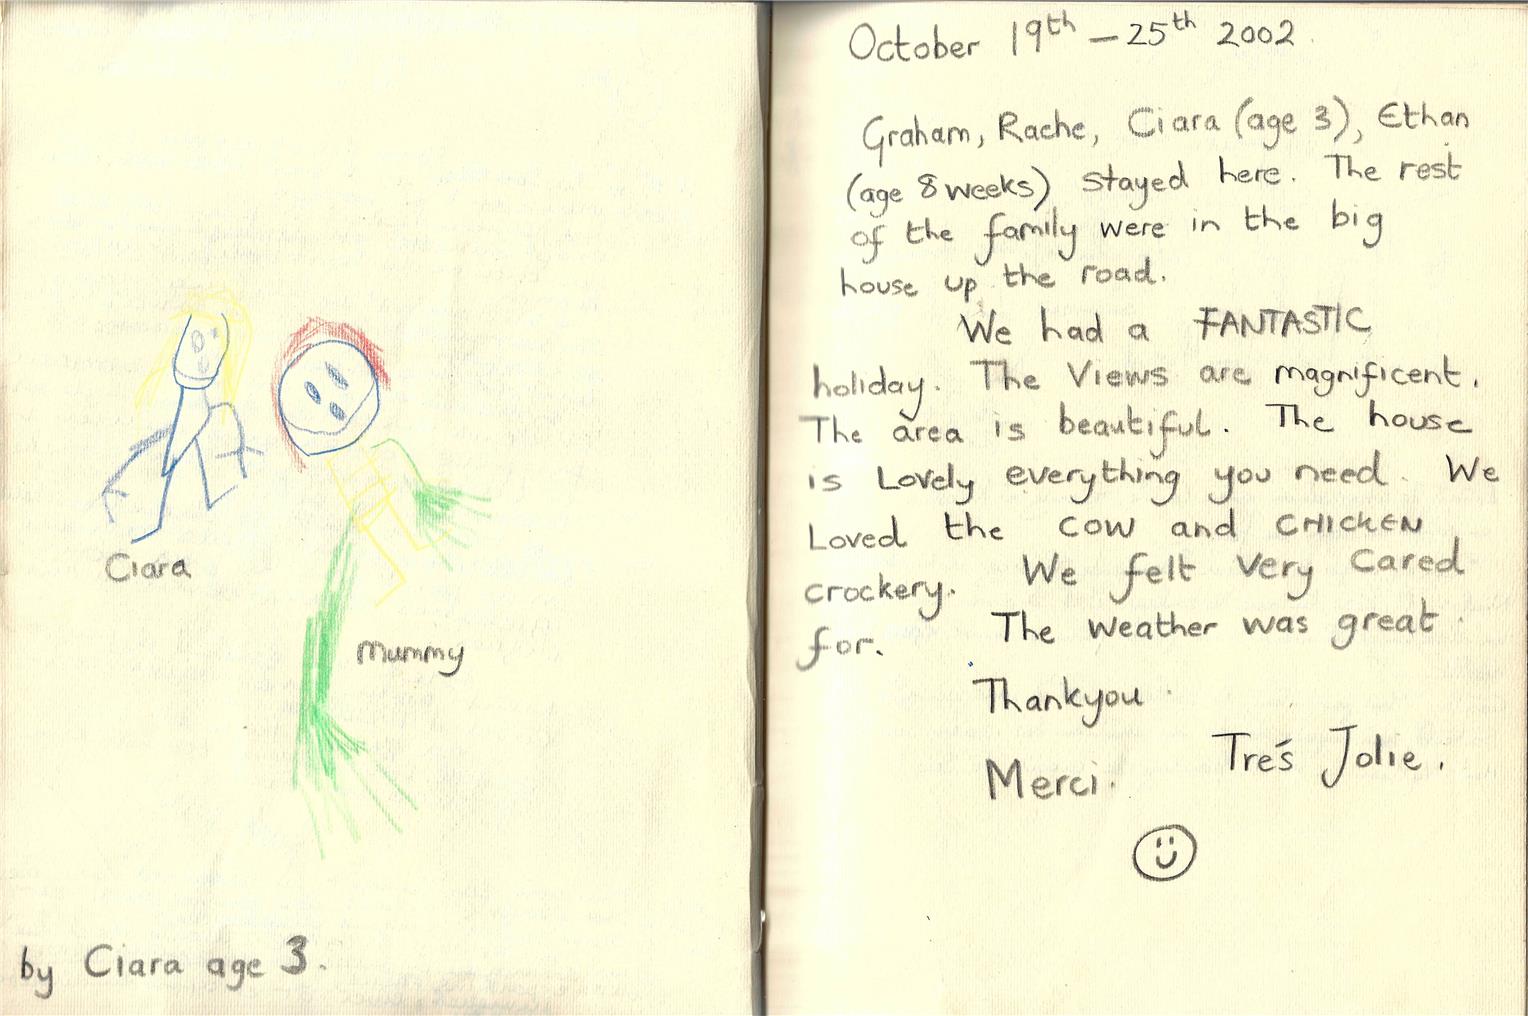 Ciara
Mummy
by Ciara age 3.
October 19th – 25th 2002.
Graham, Rache, Ciara (age 3), Ethan
(age 8 weeks) stayed here. The rest
of the family were in the big
house up the road.
We had a FANTASTIC
holiday. The Views are magnificent.
The area is beautiful. The house
is Lovely everything you need. We
Loved the COW and CHICKEN
crockery. We felt very cared
for. The weather was great.
Thankyou.
Merci. Tres Jolie.